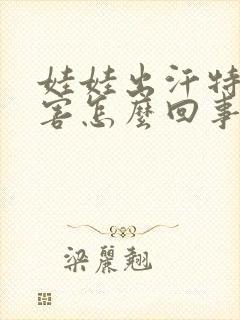 娃娃出汗特
害怎麼回事
梁麗翹